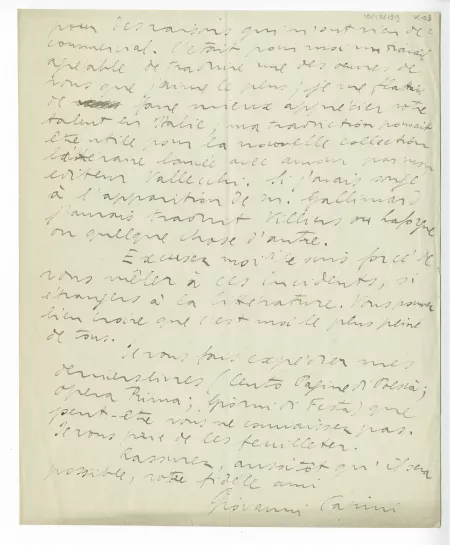 pour des raisons qui n'ont rien de
commercial. C'était pour moi un travail
agréable de traduire une des œuvres de
vous que j'aime le plus; je me flattais
de faire mieux apprécier votre
talent en Italie; ma traduction pouvait
être utile pour la nouvelle collection
littéraire lancée avec amour par mon
éditeur Vallecchi. Si j'avais songé
à l'apparition de m. Gallimard
j'aurais traduit Villiers ou Laforgue
ou quelque chose d'autre.
Excusez moi si je suis forcé de
vous mêler à ces incidents, si
étrangers à la littérature. Vous pouvez
bien croire que c'est moi le plus peiné
de tous.
Je vous fais expédier mes
derniers livres (Cento Pagine di Poesia;
Opera Prima; Giorni di Festa) que
peut-être vous ne connaissez pas.
Je vous prie de les feuilleter.
Rassurez, aussitôt qu'il sera
possible, votre fidèle ami
Giovanni Papini